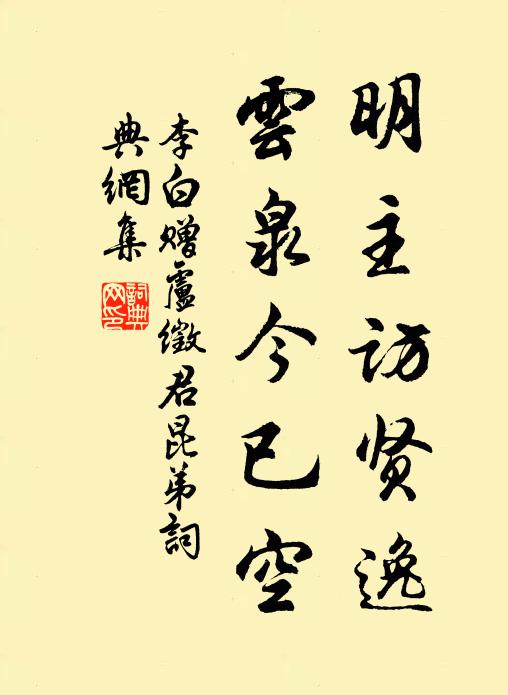 明主访贤逸
雲泉今已空
李白赠盧徵君昆弟詞
典網集
詞典网印